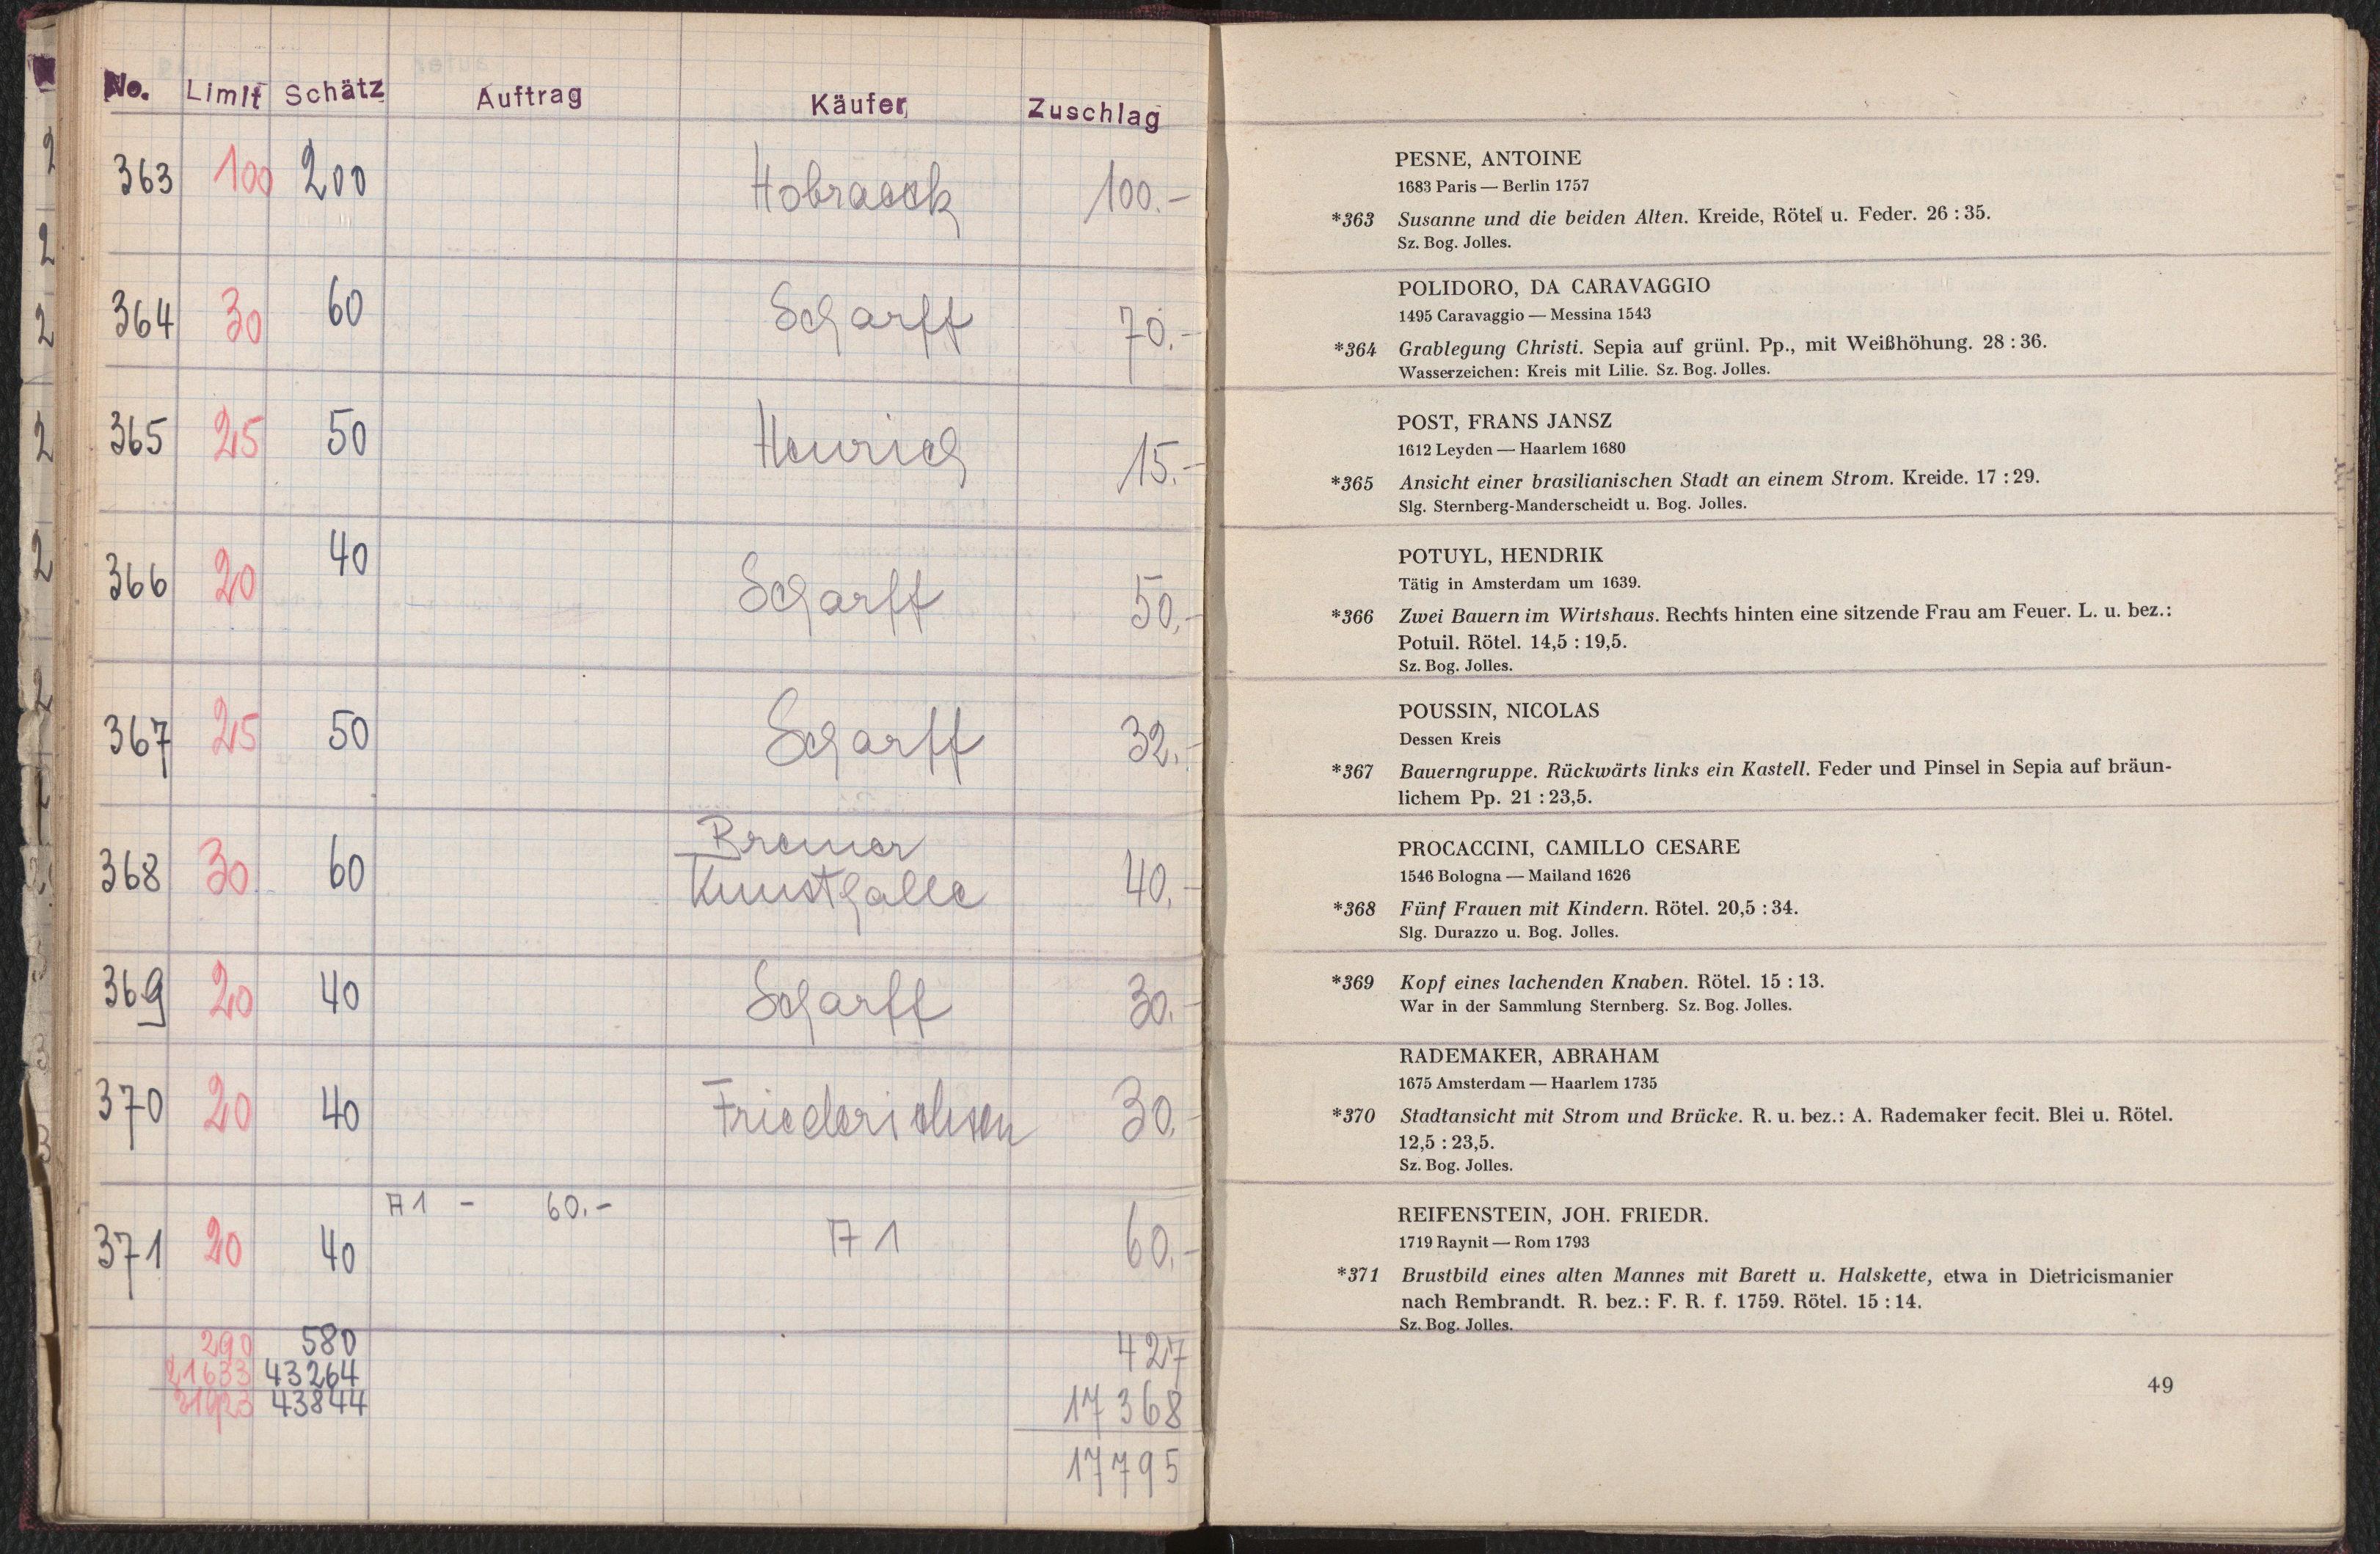 No. Limit Schätz Auftrag Käufer Zuschlag
363 100 200 Hobraack 100.-
364 30 60 Scharff 70.-
365 25 50 Heinrich 15.-
366 20 40 Scharff 50.-
367 25 50 Scharff 32.-
368 30 60 Bremer
Kunsthalle 40.-
369 20 40 Scharff 30.-
370 20 40 Friederichsen 30.-
A1 - 60.-
371 20 40 A1 60.-
290 580 427
21633 43264 17368
21923 43844
17795
PESNE, ANTOINE
1683 Paris — Berlin 1757
*363 Susanne und die beiden Alten. Kreide, Rötel u. Feder. 26 : 35.
Sz. Bog. Jolles.
POLIDORO, DA CARAVAGGIO
1495 Caravaggio — Messina 1543
*364 Grablegung Christi. Sepia auf grünl. Pp., mit Weißhöhung. 28 : 36.
Wasserzeichen: Kreis mit Lilie. Sz. Bog. Jolles.
POST, FRANS JANSZ
1612 Leyden — Haarlem 1680
*365 Ansicht einer brasilianischen Stadt an einem Strom. Kreide. 17 : 29.
Slg. Sternberg-Manderscheidt u. Bog. Jolles.
POTUYL, HENDRIK
Tätig in Amsterdam um 1639.
*366 Zwei Bauern im Wirtshaus. Rechts hinten eine sitzende Frau am Feuer. L. u. bez.:
Potuil. Rötel. 14,5 : 19,5.
Sz. Bog. Jolles.
POUSSIN, NICOLAS
Dessen Kreis
*367 Bauerngruppe. Rückwärts links ein Kastell. Feder und Pinsel in Sepia auf bräun-
lichem Pp. 21 : 23,5.
PROCACCINI, CAMILLO CESARE
1546 Bologna — Mailand 1626
*368 Fünf Frauen mit Kindern. Rötel. 20,5 : 34.
Slg. Durazzo u. Bog. Jolles.
*369 Kopf eines lachenden Knaben. Rötel. 15 : 13.
War in der Sammlung Sternberg. Sz. Bog. Jolles.
RADEMAKER, ABRAHAM
1675 Amsterdam — Haarlem 1735
*370 Stadtansicht mit Strom und Brücke. R. u. bez.: A. Rademaker fecit. Blei u. Rötel.
12,5 : 23,5.
Sz. Bog. Jolles.
REIFENSTEIN, JOH. FRIEDR.
1719 Raynit — Rom 1793
*371 Brustbild eines alten Mannes mit Barett u. Halskette, etwa in Dietricismanier
nach Rembrandt. R. bez.: F. R. f. 1759. Rötel. 15 : 14.
Sz. Bog. Jolles.
49